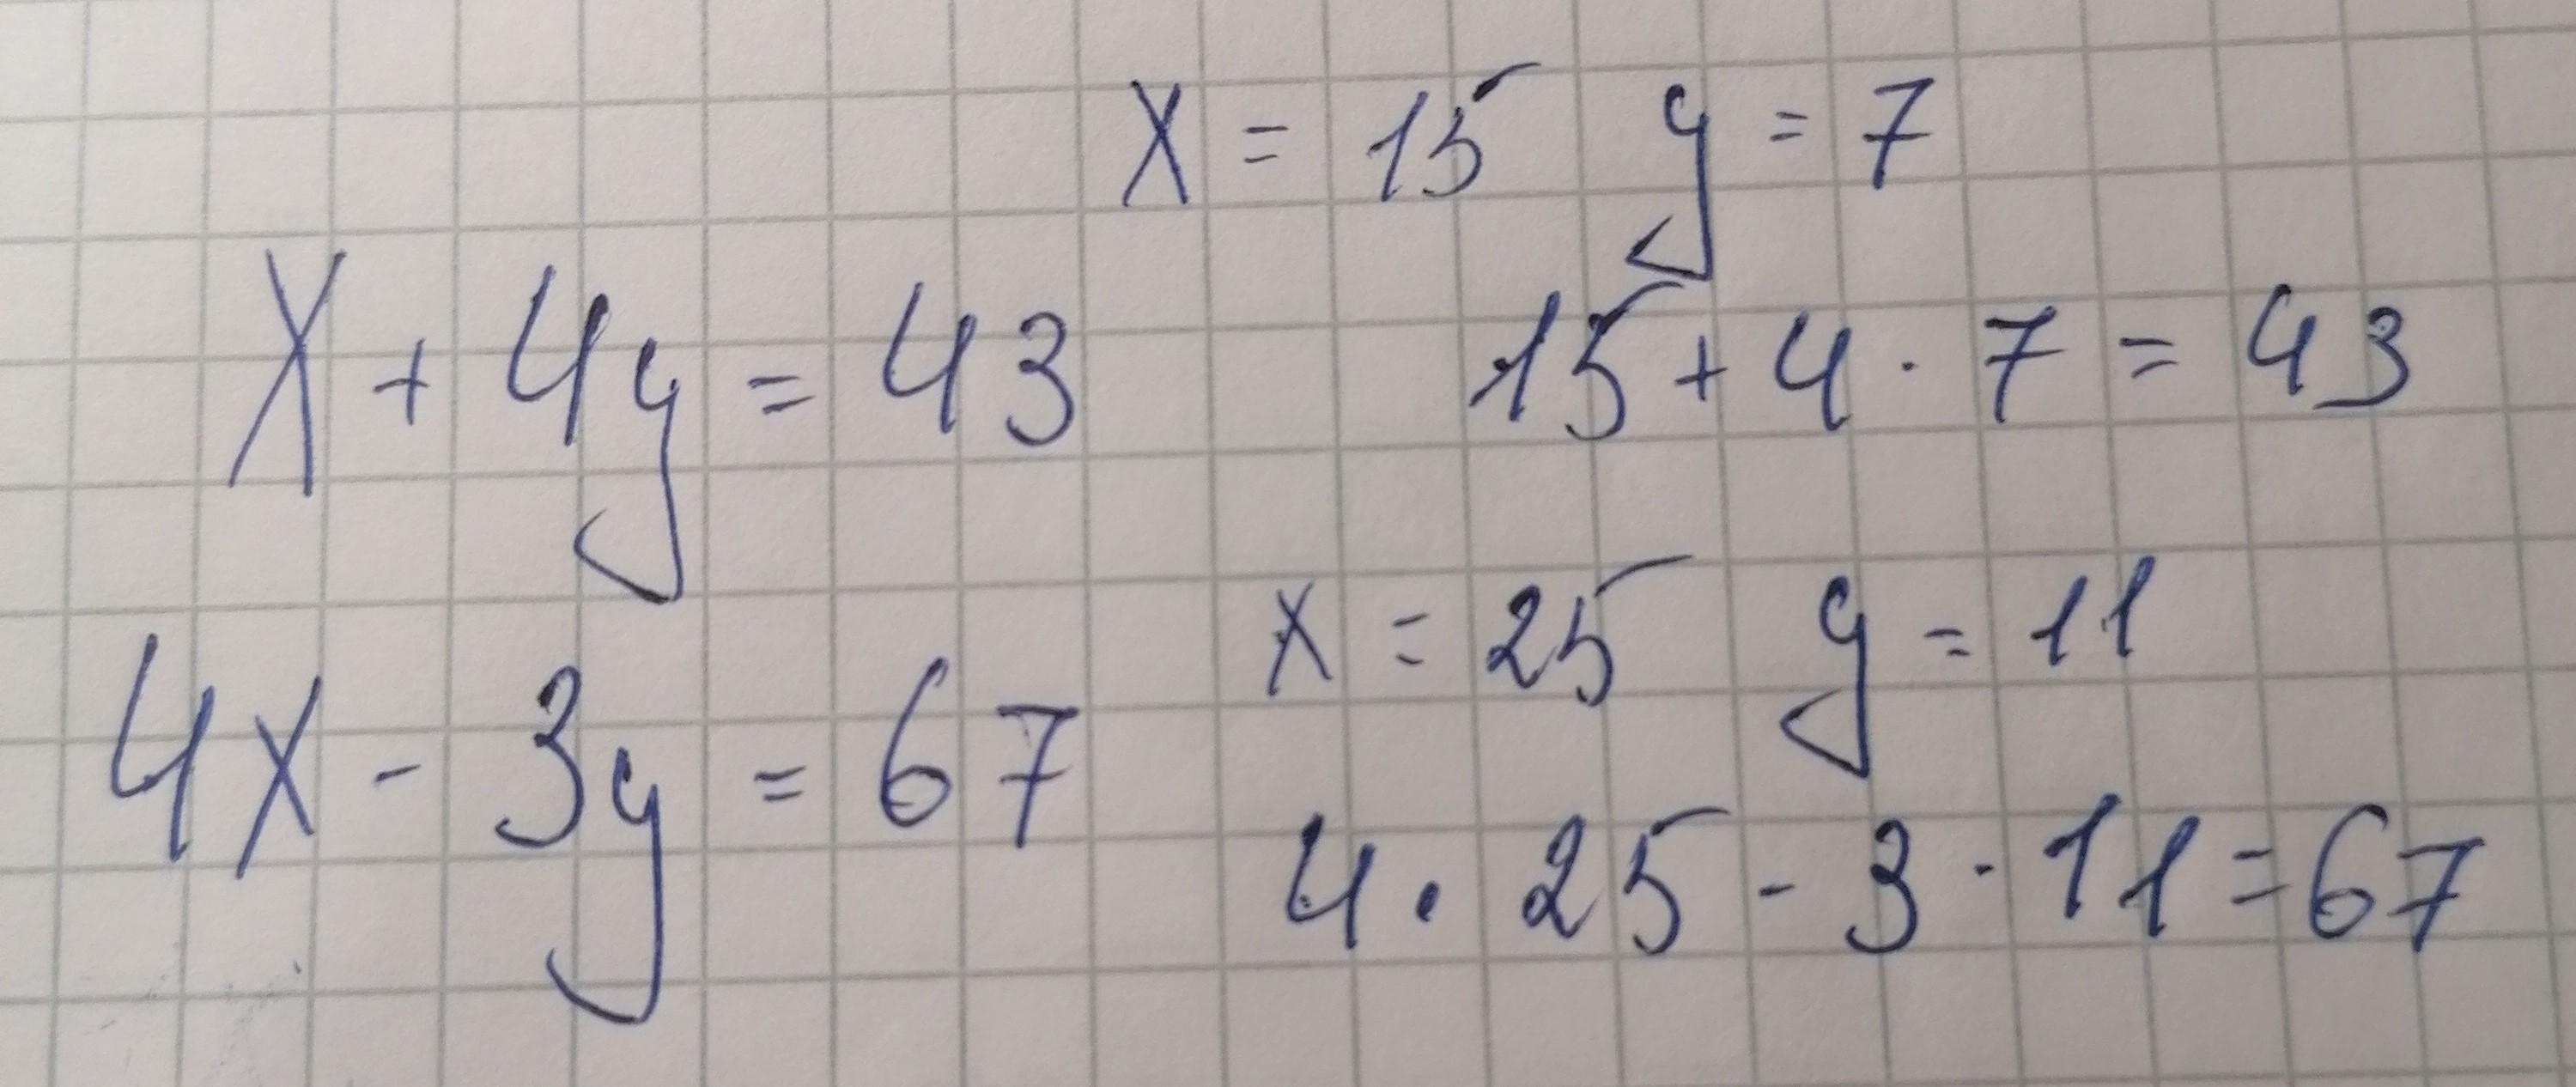 x = 15 y = 7
x + 4y = 43
15 + 4 · 7 = 43
x = 25 y = 11
4x - 3y = 67
4 · 25 - 3 · 11 = 67